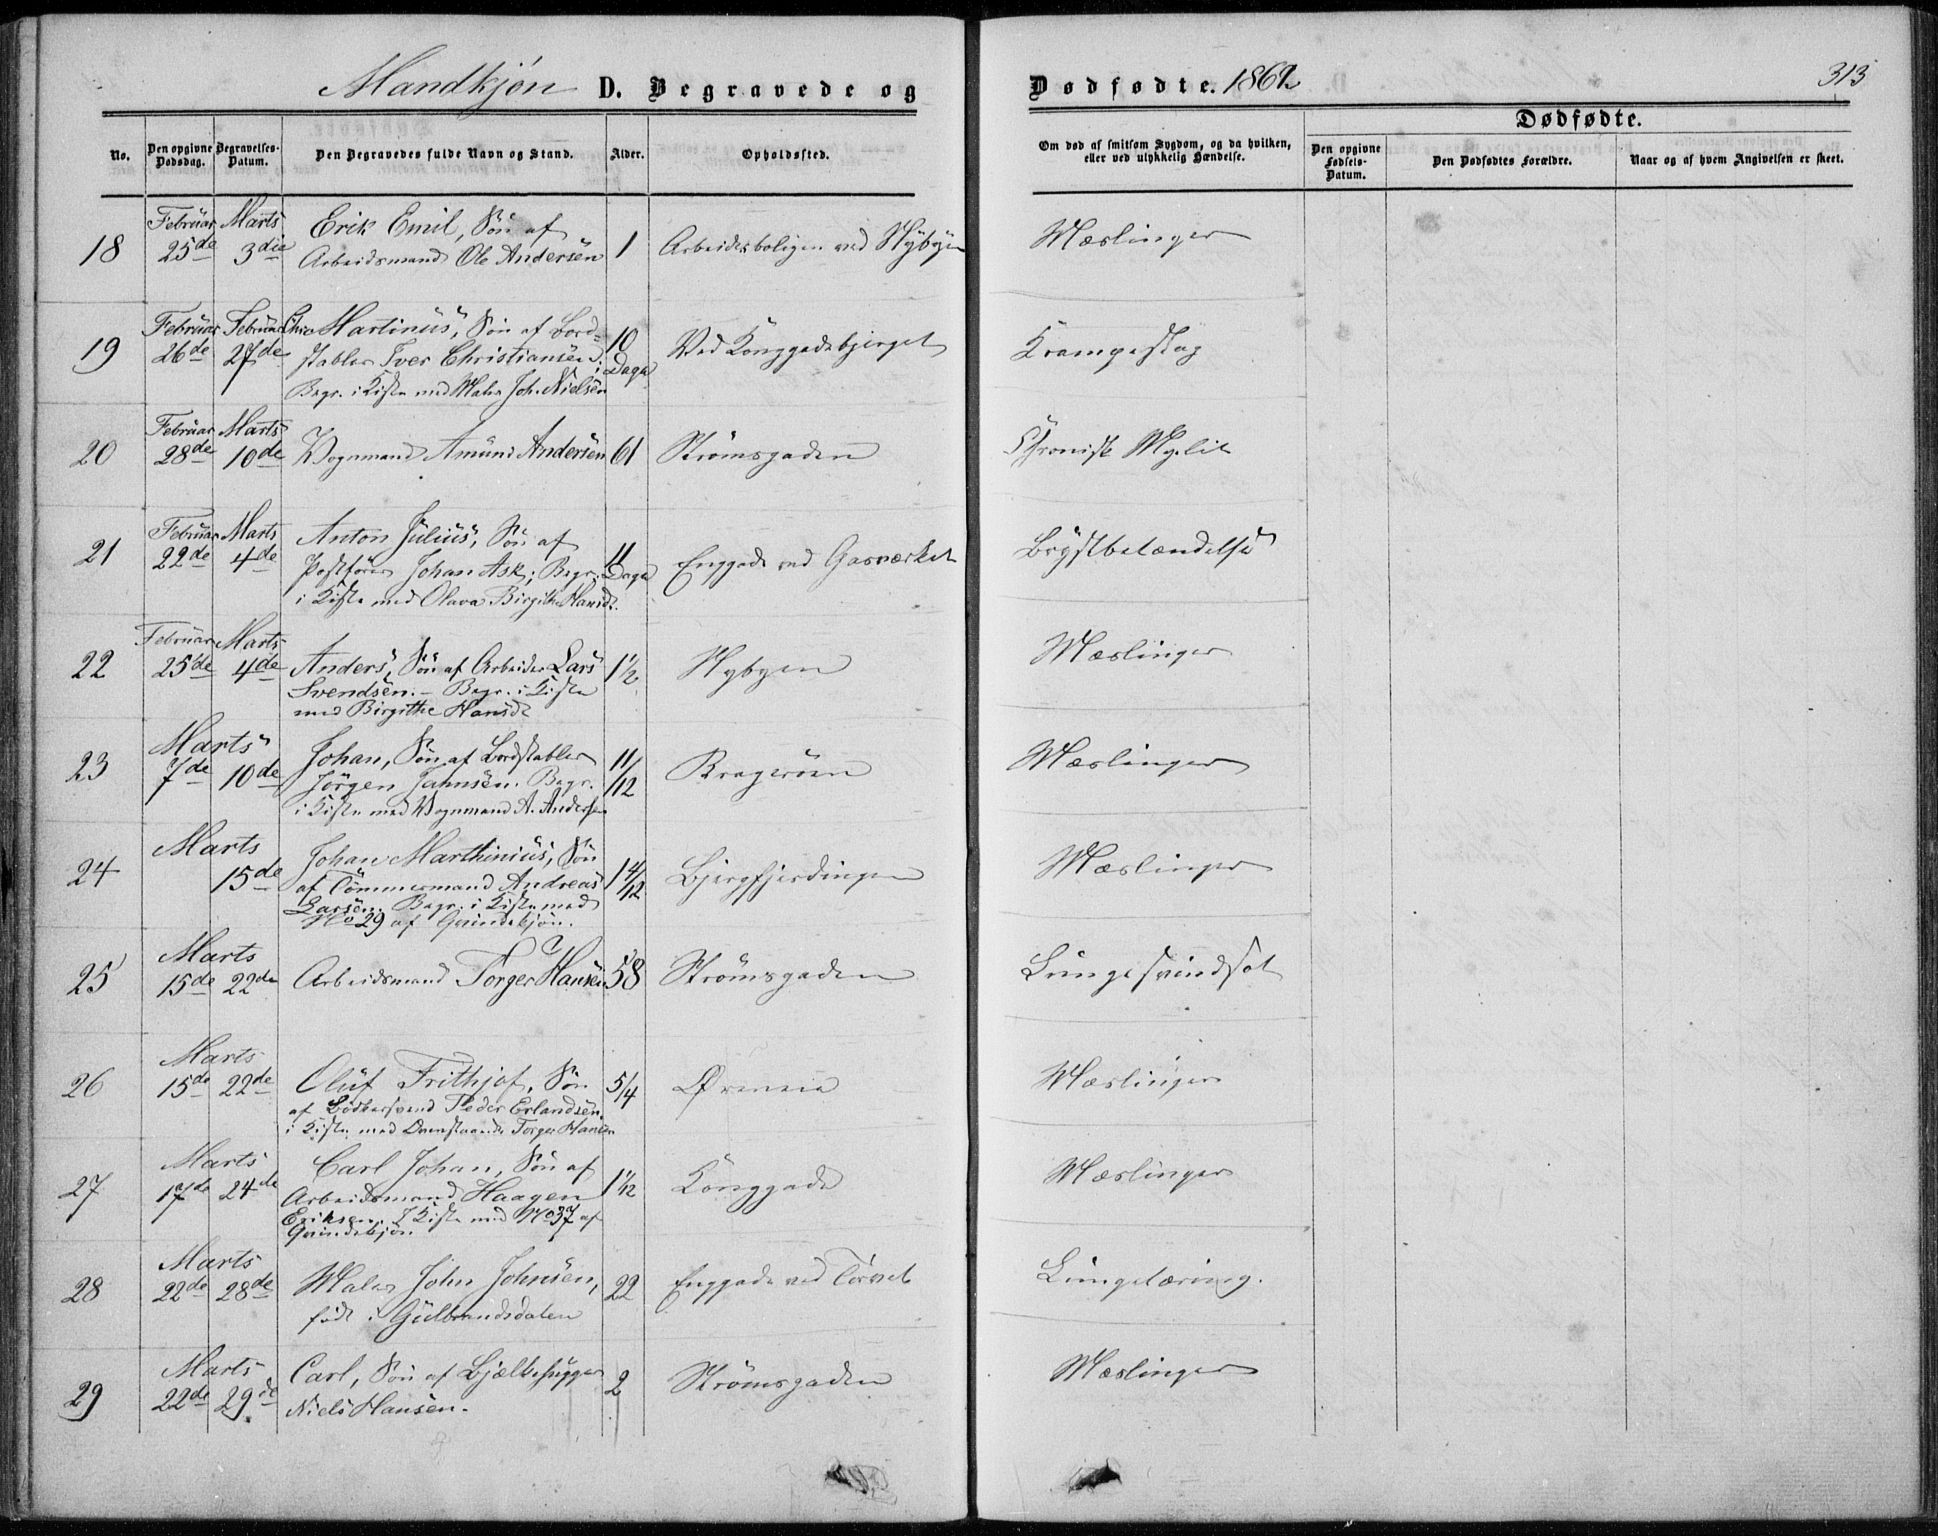 Mandkjön D. Begravede og
No.
Den opgivne Dødsdag.
Begravelses-Datum.
Den Begravedes fulde Navn og Stand.
Alder.
Opholdssted.
18 Februar 25de Marts 3die
Erik Emil, Søn af
Arbeidsmand Ole Andersen
1 Arbeidsboligen ved Nybyen
19 Februar 26de Februar 27de
Martinus, Søn af Bord-
stabler Iver Christiansen
Begr. i Kiste med Maler Joh. Nielsen
10 Dage Ved Konggadebjerget
20 Februar 28de Marts 10de
Vognmand Amund Andersen
61 Strömsgaden
21 Februar 22de Marts 4de
Anton Julius, Søn af
Postfører Johan Ask; Begr.
i Kiste med Olava Birgithe Hansd.
11 Dage Enggade ved Gasværket
22 Februar 25de Marts 4de
Anders, Søn af Arbeider Lars
Svendsen. – Begr. i Kiste
med Birgithe Hansd.
1½ Nybyen
23 Marts 7de 10de
Johan, Søn af Bordstabler
Jörgen Jahnsen. Begr.
i Kiste med Vognmand A. Andersen
11/12 Bragerøen
24 Marts 15de
Johan Marthinius, Søn
af Tömmermand Andreas
Larsen. Begr. i Kiste med
No 29 af Qvindekjön.
1 4/12 Bjergfjerdingen
25 Marts 15de 22de
Arbeidsmand Torger Hansen
58 Strömsgaden
26 Marts 15de 22de
Oluf Frithjof, Søn
af Bödkersvend Peder Erlandsen.
i Kiste med Ovenstaaende Torger Hansen
5/4 Øreneie
27 Marts 17de 24de
Carl Johan, Søn af
Arbeidsmand Haagen
Eriksen. I Kiste med No 37 af
Qvindekjön.
1 1/12 Konggade
28 Marts 22de 28de
Maler John Johnsen,
født i Gulbrandsdalen
22 Enggade ved Torvet
29 Marts 22de 29de
Carl, Søn af Bjælkehugger
Niels Hansen.
2 Strömsgaden
Dødfødte. 1862
313
Om død af smitsom Sygdom, og da hvilken,
eller ved ulykkelig Hændelse.
Dødfødte.
Den opgivne Fødsels-Datum.
Den Dødfødtes Forældre.
Naar og af hvem Angivelsen er skeet.
Mæslinger
Krampeslag
Chronisk Myelit
Brystbetændelse
Mæslinger
Mæslinger
Mæslinger
Lungesvindsot
Mæslinger
Mæslinger
Lungetæring.
Mæslinger